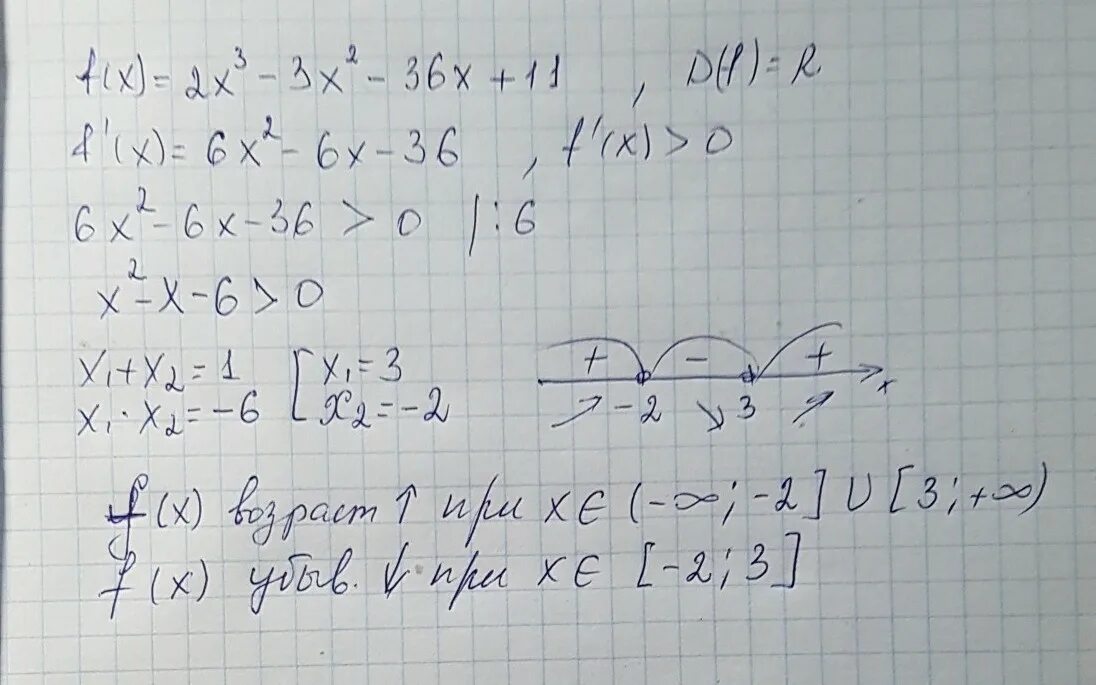 f(x) = 2x³ - 3x² - 36x + 11 , D(f) = R
f'(x) = 6x² - 6x - 36 , f'(x) > 0
6x² - 6x - 36 > 0 |:6
x² - x - 6 > 0
x₁ + x₂ = 1 [ x₁ = 3
x₁ · x₂ = -6 [ x₂ = -2
+ - +
↗ -2 ↘ 3 ↗ x
f(x) возраст ↑ при x ∈ (-∞; -2] U [3; +∞)
f(x) убыв. ↓ при x ∈ [-2; 3]